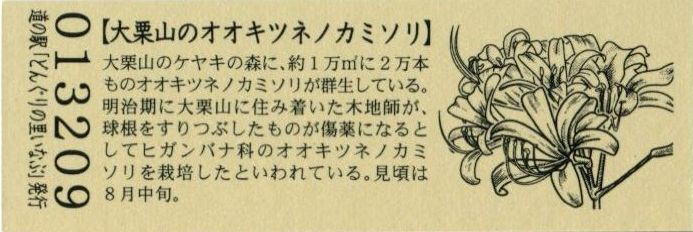 【大栗山のオオキツネノカミソリ】
大栗山のケヤキの森に、約1万㎡に2万本
ものオオキツネノカミソリが群生している。
明治期に大栗山に住み着いた木地師が、
球根をすりつぶしたものが傷薬になると
してヒガンバナ科のオオキツネノカミ
ソリを栽培したといわれている。見頃は
8月中旬。
013209
道の駅「どんぐりの里いなぶ」発行